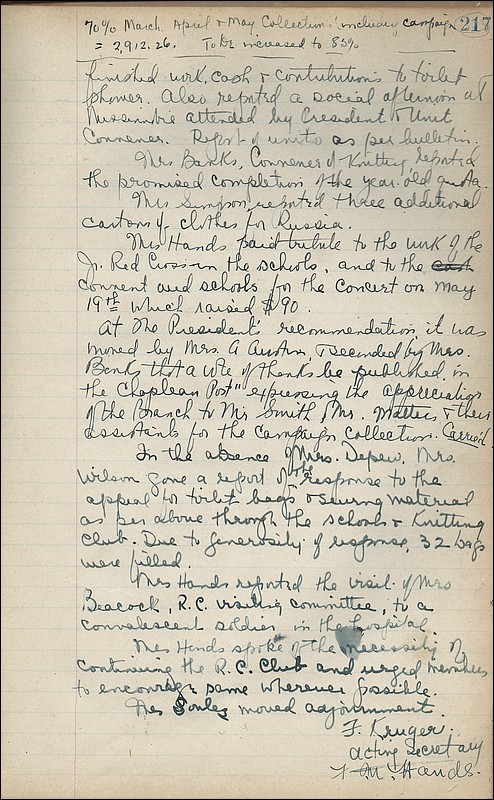 217
70% March April & May Collection (including campaign
= 2,912.26. To be increased to 85%
finished work, cash & contributions to toilet
shower. Also reported a social afternoon at
Missanabie attended by President & Unit
Convener. Report of units as per bulletin.
Mrs Banks, Convener of Knitting reported
the promised completion of the year old quota.
Mrs Simpson reported three additional
cartons of clothes for Russia.
Mrs Hands paid tribute to the work of the
Jr. Red Cross in the schools, and to the cash
convent and schools for the concert on May
19th which raised $90.
At the President's recommendation it was
moved by Mrs. A Austin, seconded by Mrs.
Banks that a vote of thanks be published in
the Chapleau Post" expressing the appreciation
of the Branch to Mr Smith, Mr. & their
assistants for the campaign collection. Carried.
In the absence of Mrs. Depew, Mrs.
Wilson gave a report of the response to the
appeal for toilet bags & sewing material
as per above through the schools & Knitting
Club. Due to generosity of response, 32 bags
were filled.
Mrs Hands reported the visit of Mrs
Beacock, R.C. visiting committee, to a
convalescent soldier in the hospital.
Mrs Hands spoke of the necessity of
continuing the R.C. Club and urged members
to encourage same wherever possible.
Mrs Soule moved adjournment.
F. Kruger.
acting secretary
M. Hands.